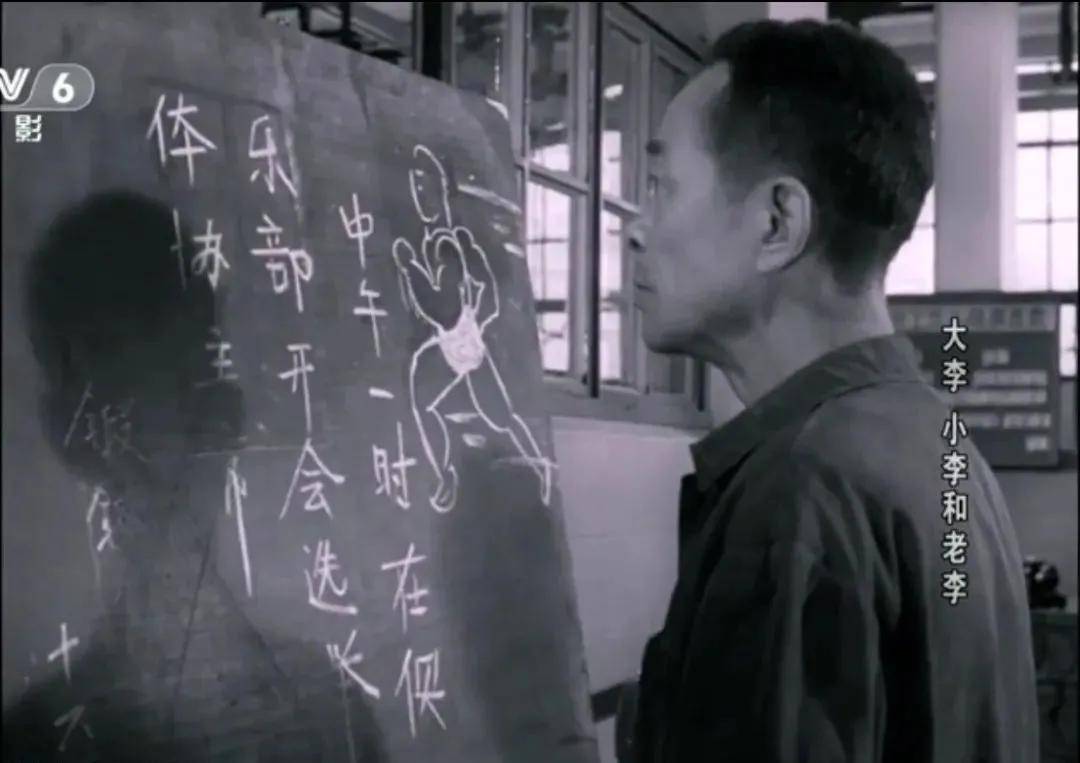 V 6
影
中午一时在俱
乐部开会选
体协主
锻
十
大李 小李和老李